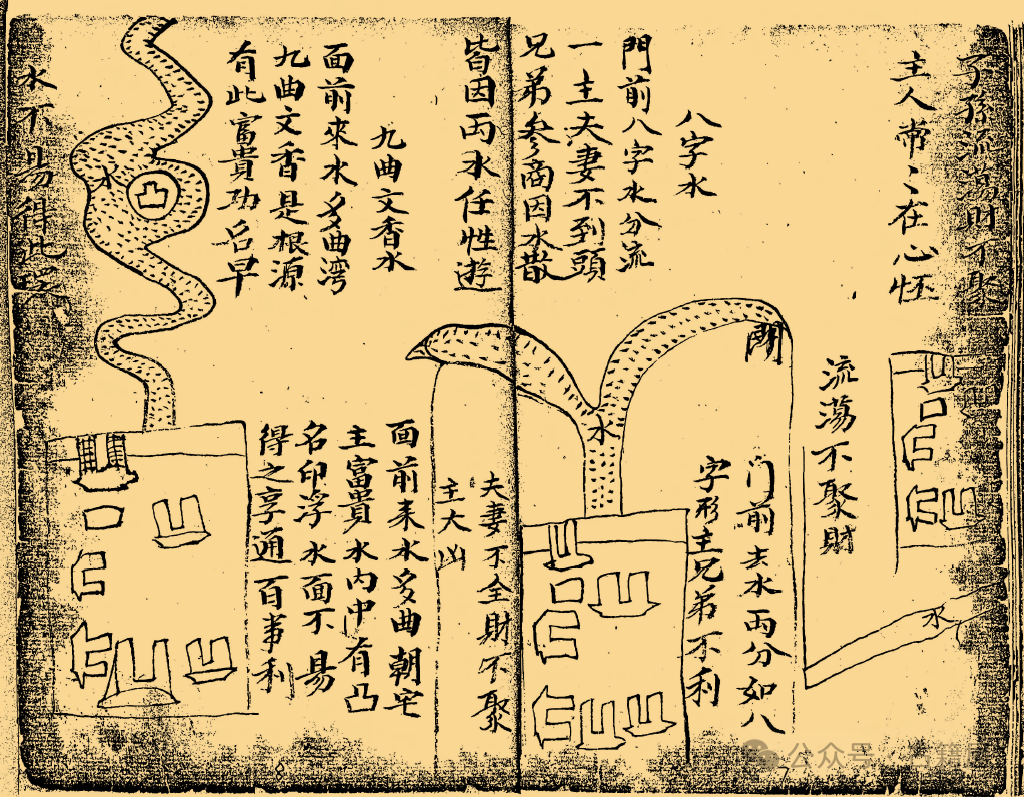 子孫流蕩財不聚
主人常〻在心怪
流蕩不聚財
水
八字水
門前八字水分流
一主夫妻不到頭
兄弟参商因水散
皆因两水任性遊
開
水
门前去水両分如八
字形主兄弟不利
夫妻不全財不聚
主大凶
九曲文香水
面前來水多曲湾
九曲文香是根源
有此富貴功名早
水
凸
面前来水多曲朝宅
主富貴水内中有凸
名印浮水面不易
得之享通百事利
水不易得此
公众号